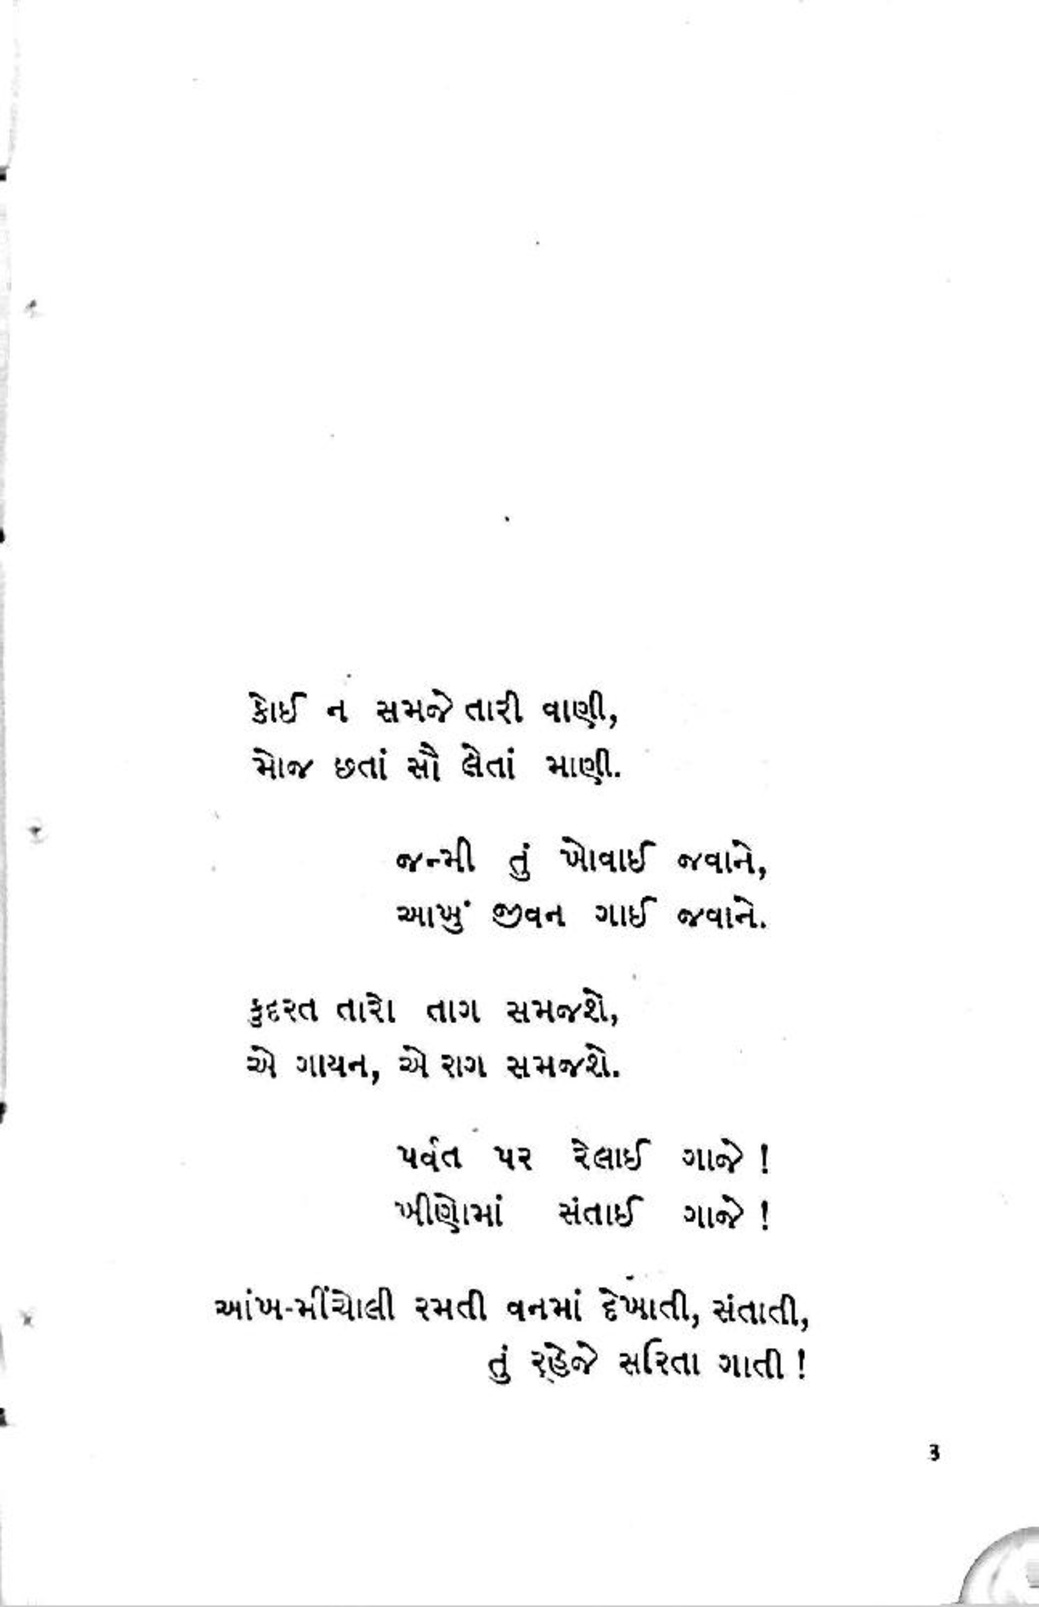 કોઈ ન સમજે તારી વાણી,
મોજ છતાં સૌ લેતાં માણી.
જન્મી તું ખોવાઈ જવાને,
આખું જીવન ગાઈ જવાને.
કુદરત તારો તાગ સમજશે,
એ ગાયન, એ રાગ સમજશે.
પર્વત પર રેલાઈ ગાજે !
ખીણોમાં સંતાઈ ગાજે !
આંખ-મીંચોલી રમતી વનમાં દેખાતી, સંતાતી,
તું ર્‌હેજે સરિતા ગાતી !
૩